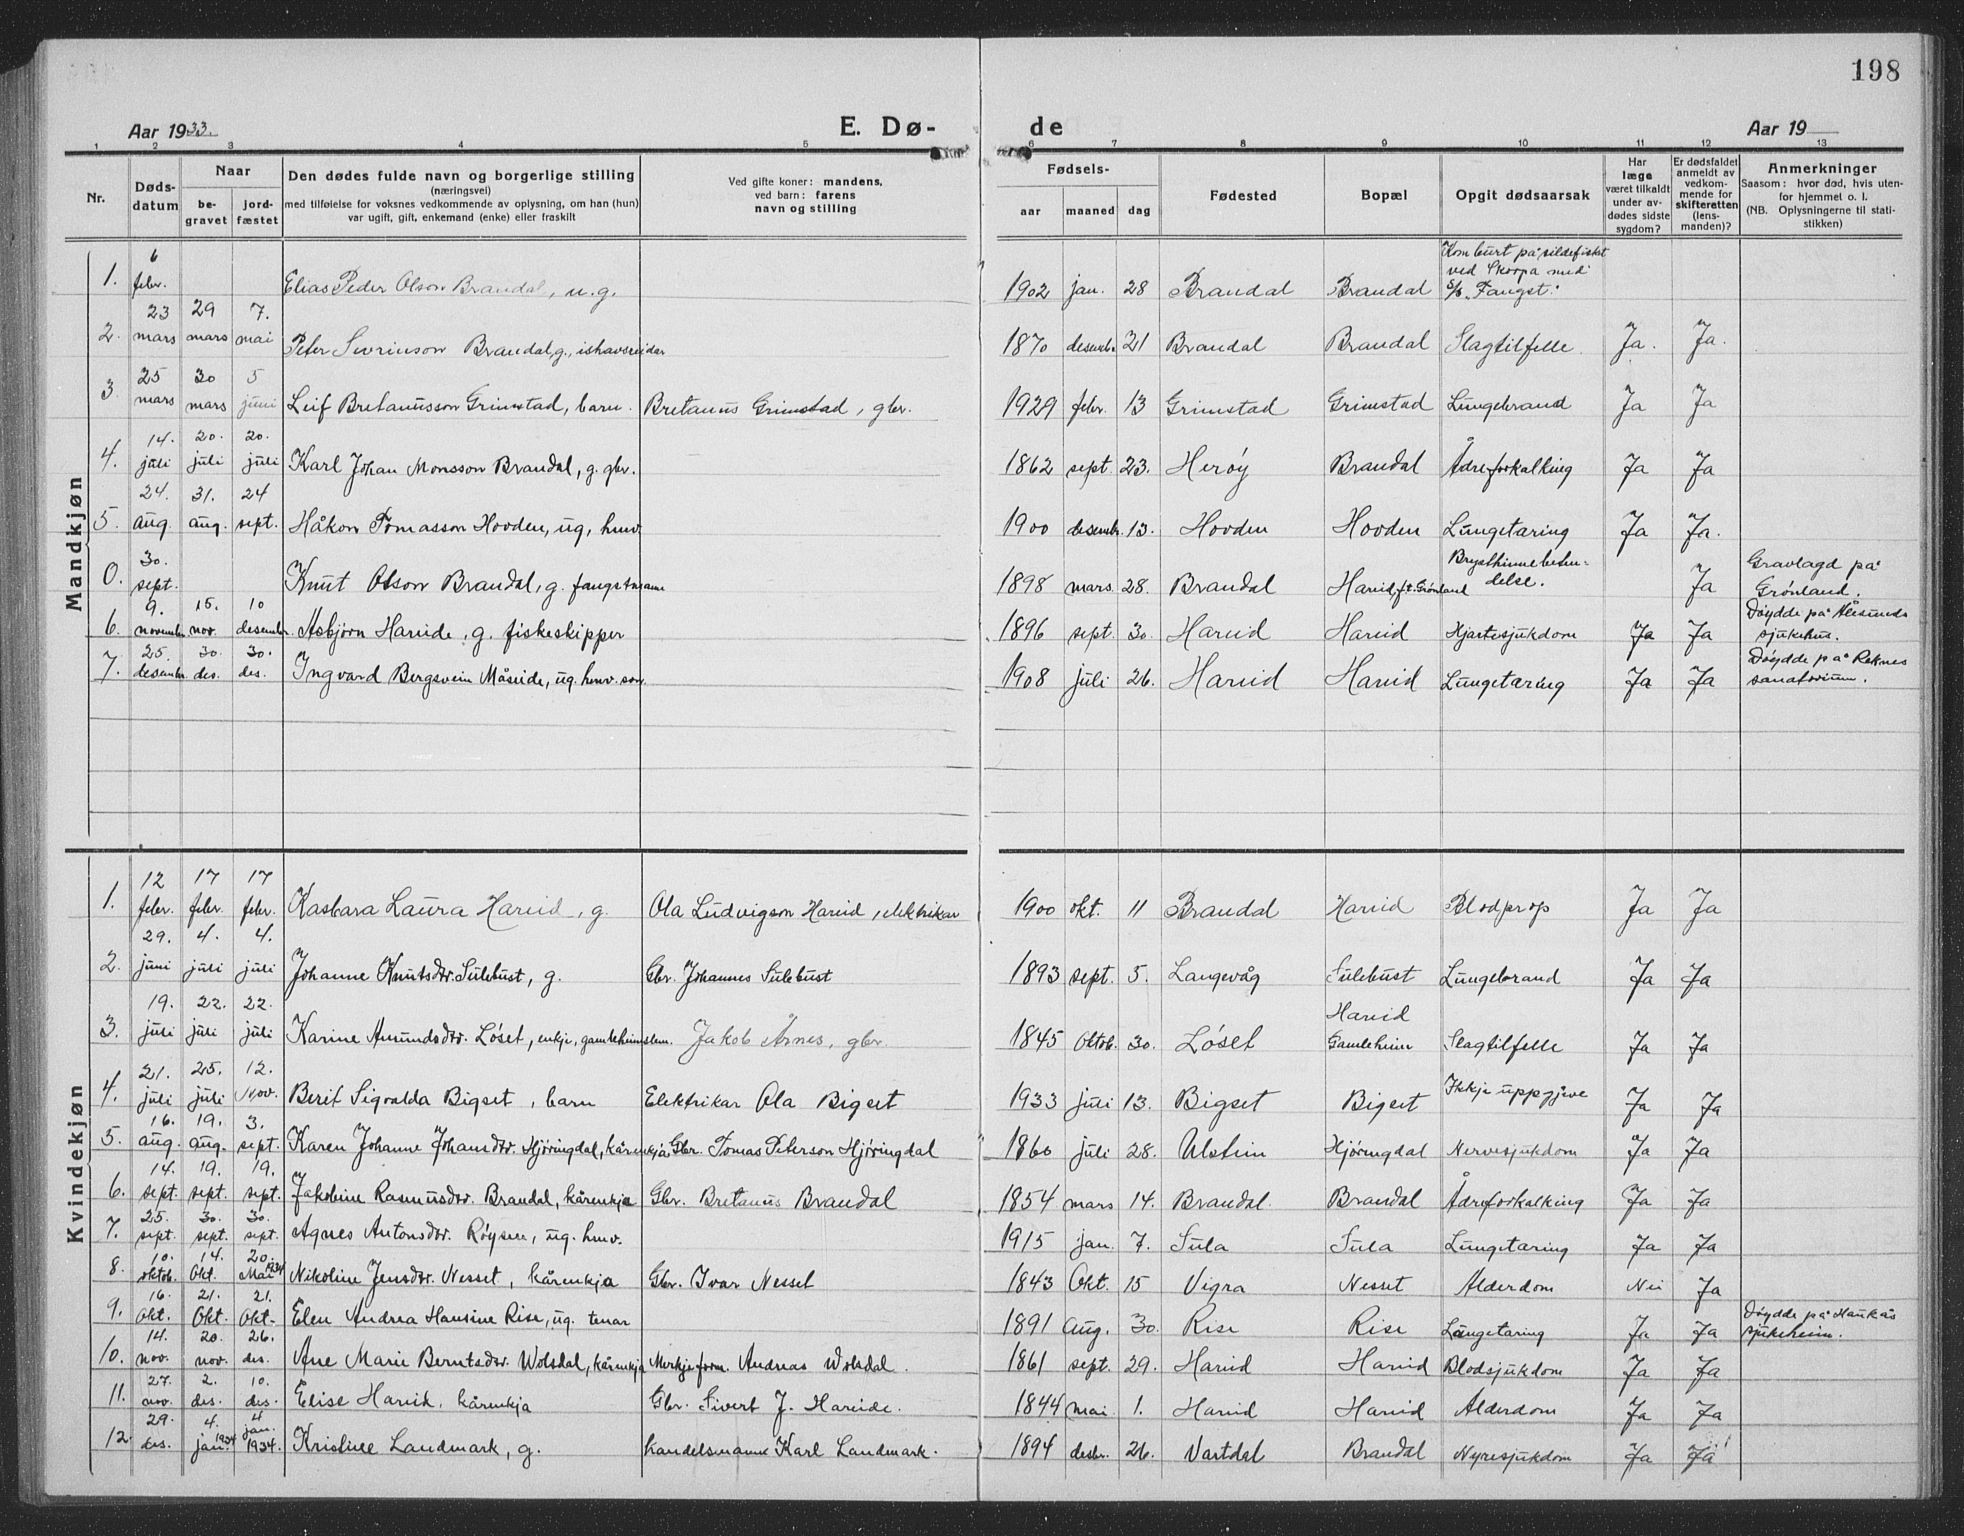 198
Aar 1933.
E. Dø-
de
Aar 19
1 2 3 4 5 6 7 8 9 10 11 12 13
Nr.
Døds-
datum
Naar
be-
gravet
jord-
fæstet
Den dødes fulde navn og borgerlige stilling
(næringsvei)
med tilføielse for voksnes vedkommende av oplysning, om han (hun)
var ugift, gift, enkemand (enke) eller fraskilt
Ved gifte koner: mandens,
ved barn: farens
navn og stilling
Fødsels-
aar maaned dag
Fødested
Bopæl
Opgit dødsaarsak
Har
læge
været tilkaldt
under av-
dødes sidste
sygdom?
Er dødsfaldet
anmeldt av
vedkom-
mende for
skifteretten
(lens-
manden)?
Anmerkninger
Saasom: hvor død, hvis uten-
for hjemmet o. l.
(NB. Oplysningerne til stati-
stikken)
Mandkjøn
1. 6 febr. Elias Peder Olson Brandal, u.g. 1902 jan. 28 Brandal Brandal Kom burt på sildefisket
ved Skorpa med
S/S „Fangst."
2. 23 mars 29 mars 7. mai Peter Sevrinson Brandal, g., ishavsreidar 1870 desemb. 21 Brandal Brandal Slagtilfelle Ja. Ja.
3. 25 mars 30 mars 5 juni Leif Bretanusson Grimstad, barn. Bretanus Grimstad, gbr. 1929 febr. 13 Grimstad Grimstad Lungebrand Ja Ja
4. 14. juli 20. juli 20. juli Karl Johan Monsson Brandal, g. gbr. 1862 sept. 23. Herøy Brandal Ådreforkalking Ja Ja
5. 24. aug. 31. aug. 24 sept. Håkon Tomasson Hovden, ug, hmv. 1900 desembr. 13. Hovden Hovden Lungetæring Ja Ja.
0. 30. sept. Knut Olson Brandal, g. fangstmann 1898 mars 28. Brandal Hareid, ft. Grønland Brysthinnebeten-
delse. Ja Gravlagd på
Grønland.
6. 9. november 15. nov. 10 desember. Asbjørn Hareide, g. fiskeskipper 1896 sept. 30. Hareid Hareid Hjartesjukdom Ja Ja Døydde på Ålesunds
sjukehus.
7. 25. desembr. 30. des. 30. des. Ingvard Bergsvein Måseide, ug. hmv. son 1908 juli 26. Hareid Hareid Lungetæring Ja Ja Døydde på Reknes
sanatorium.
Kvindekjøn
1. 12 febr. 17 febr. 17 febr. Kasbara Laura Hareid, g. Ola Ludvigson Hareid, elektrikar 1900 okt. 11 Brandal Hareid Blodprop Ja Ja
2. 29. juni 4. juli 4. juli Johanne Knutsdtr. Sulebust, g. Gbr. Johannes Sulebust 1893 sept. 5. Langevåg Sulebust Lungebrand Ja Ja
3. 19. juli 22. juli 22. juli Karine Amundsdtr. Løset, enkje, gamleheimslem. Jakob Årnes, gbr. 1845 Oktob. 30. Løset Hareid
Gamleheim Slagtilfelle Ja Ja
4. 21. juli 25. juli 12. Nov. Berit Sigvalda Bigset, barn Elektrikar Ola Bigset 1933 juli 13. Bigset Bigset Ikkje uppgjeve Ja Ja
5. 16. aug. 19. aug. 3. sept. Karen Johanne Johansdtr. Hjøringdal, kårenkja Gbr. Tomas Peterson Hjøringdal 1860 juli 28. Ulstein Hjøringdal Nervesjukdom Ja Ja
6. 14. sept. 19. sept. 19. sept. Jakobine Rasmusdtr. Brandal, kårenkja Gbr. Bretanus Brandal 1854 mars 14. Brandal. Brandal Ådreforkalking Ja Ja
7. 25. sept. 30. sept. 30. sept. Agnes Antonsdtr. Røysen, ug. hmv. 1915 jan. 7. Sula Sula Lungetæring Ja Ja
8. 10. oktob. 14. Okt. 20. Mai 1934 Nikoline Jensdtr. Nesset, kårenkja Gbr. Ivar Nesset 1843 Okt. 15 Vigra Nesset Alderdom Nei Ja
9. 16. Okt. 21. Okt. 21. Okt. Elen Andrea Hansine Rise, ug. tenar 1891 Aug. 30. Rise Rise Lungetæring Ja Ja Døydde på Haukås
sjukeheim.
10. 14. nov. 20. nov. 26. des. Ane Marie Berntsdtr. Wolsdal, kårenkja Merkjeform. Andreas Wolsdal. 1861 sept. 29. Hareid Hareid Blodsjukdom Ja Ja
11. 27. nov. 2. des. 10. des. Elise Hareid, kårenkja Gbr. Sivert J. Hareide. 1844 mai 1. Hareid Hareid Alderdom Ja Ja
12. 29. des. 4. jan. 1934 4 jan. 1934. Kristine Landmark, g. handelsmann Karl Landmark. 1894 desbr. 26. Vartdal Brandal Nyresjukdom Ja Ja